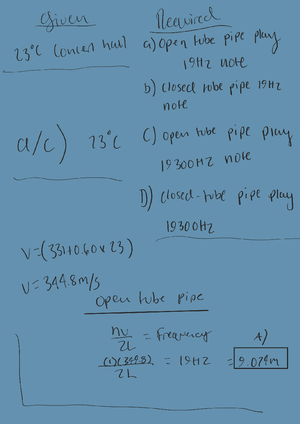 Given
Required
23°C Concert hall
a) Open tube pipe play
19Hz note
b) closed tube pipe 19Hz
note
a/c) 23°C
C) open tube pipe play
19300HZ note
D) closed-tube pipe play
19300Hz
V=(331+0.60x23)
V=344.8m/s
Open tube pipe
nv/2L = frequency
A)
(1)(344.8)/2L = 19HZ = 9.074m